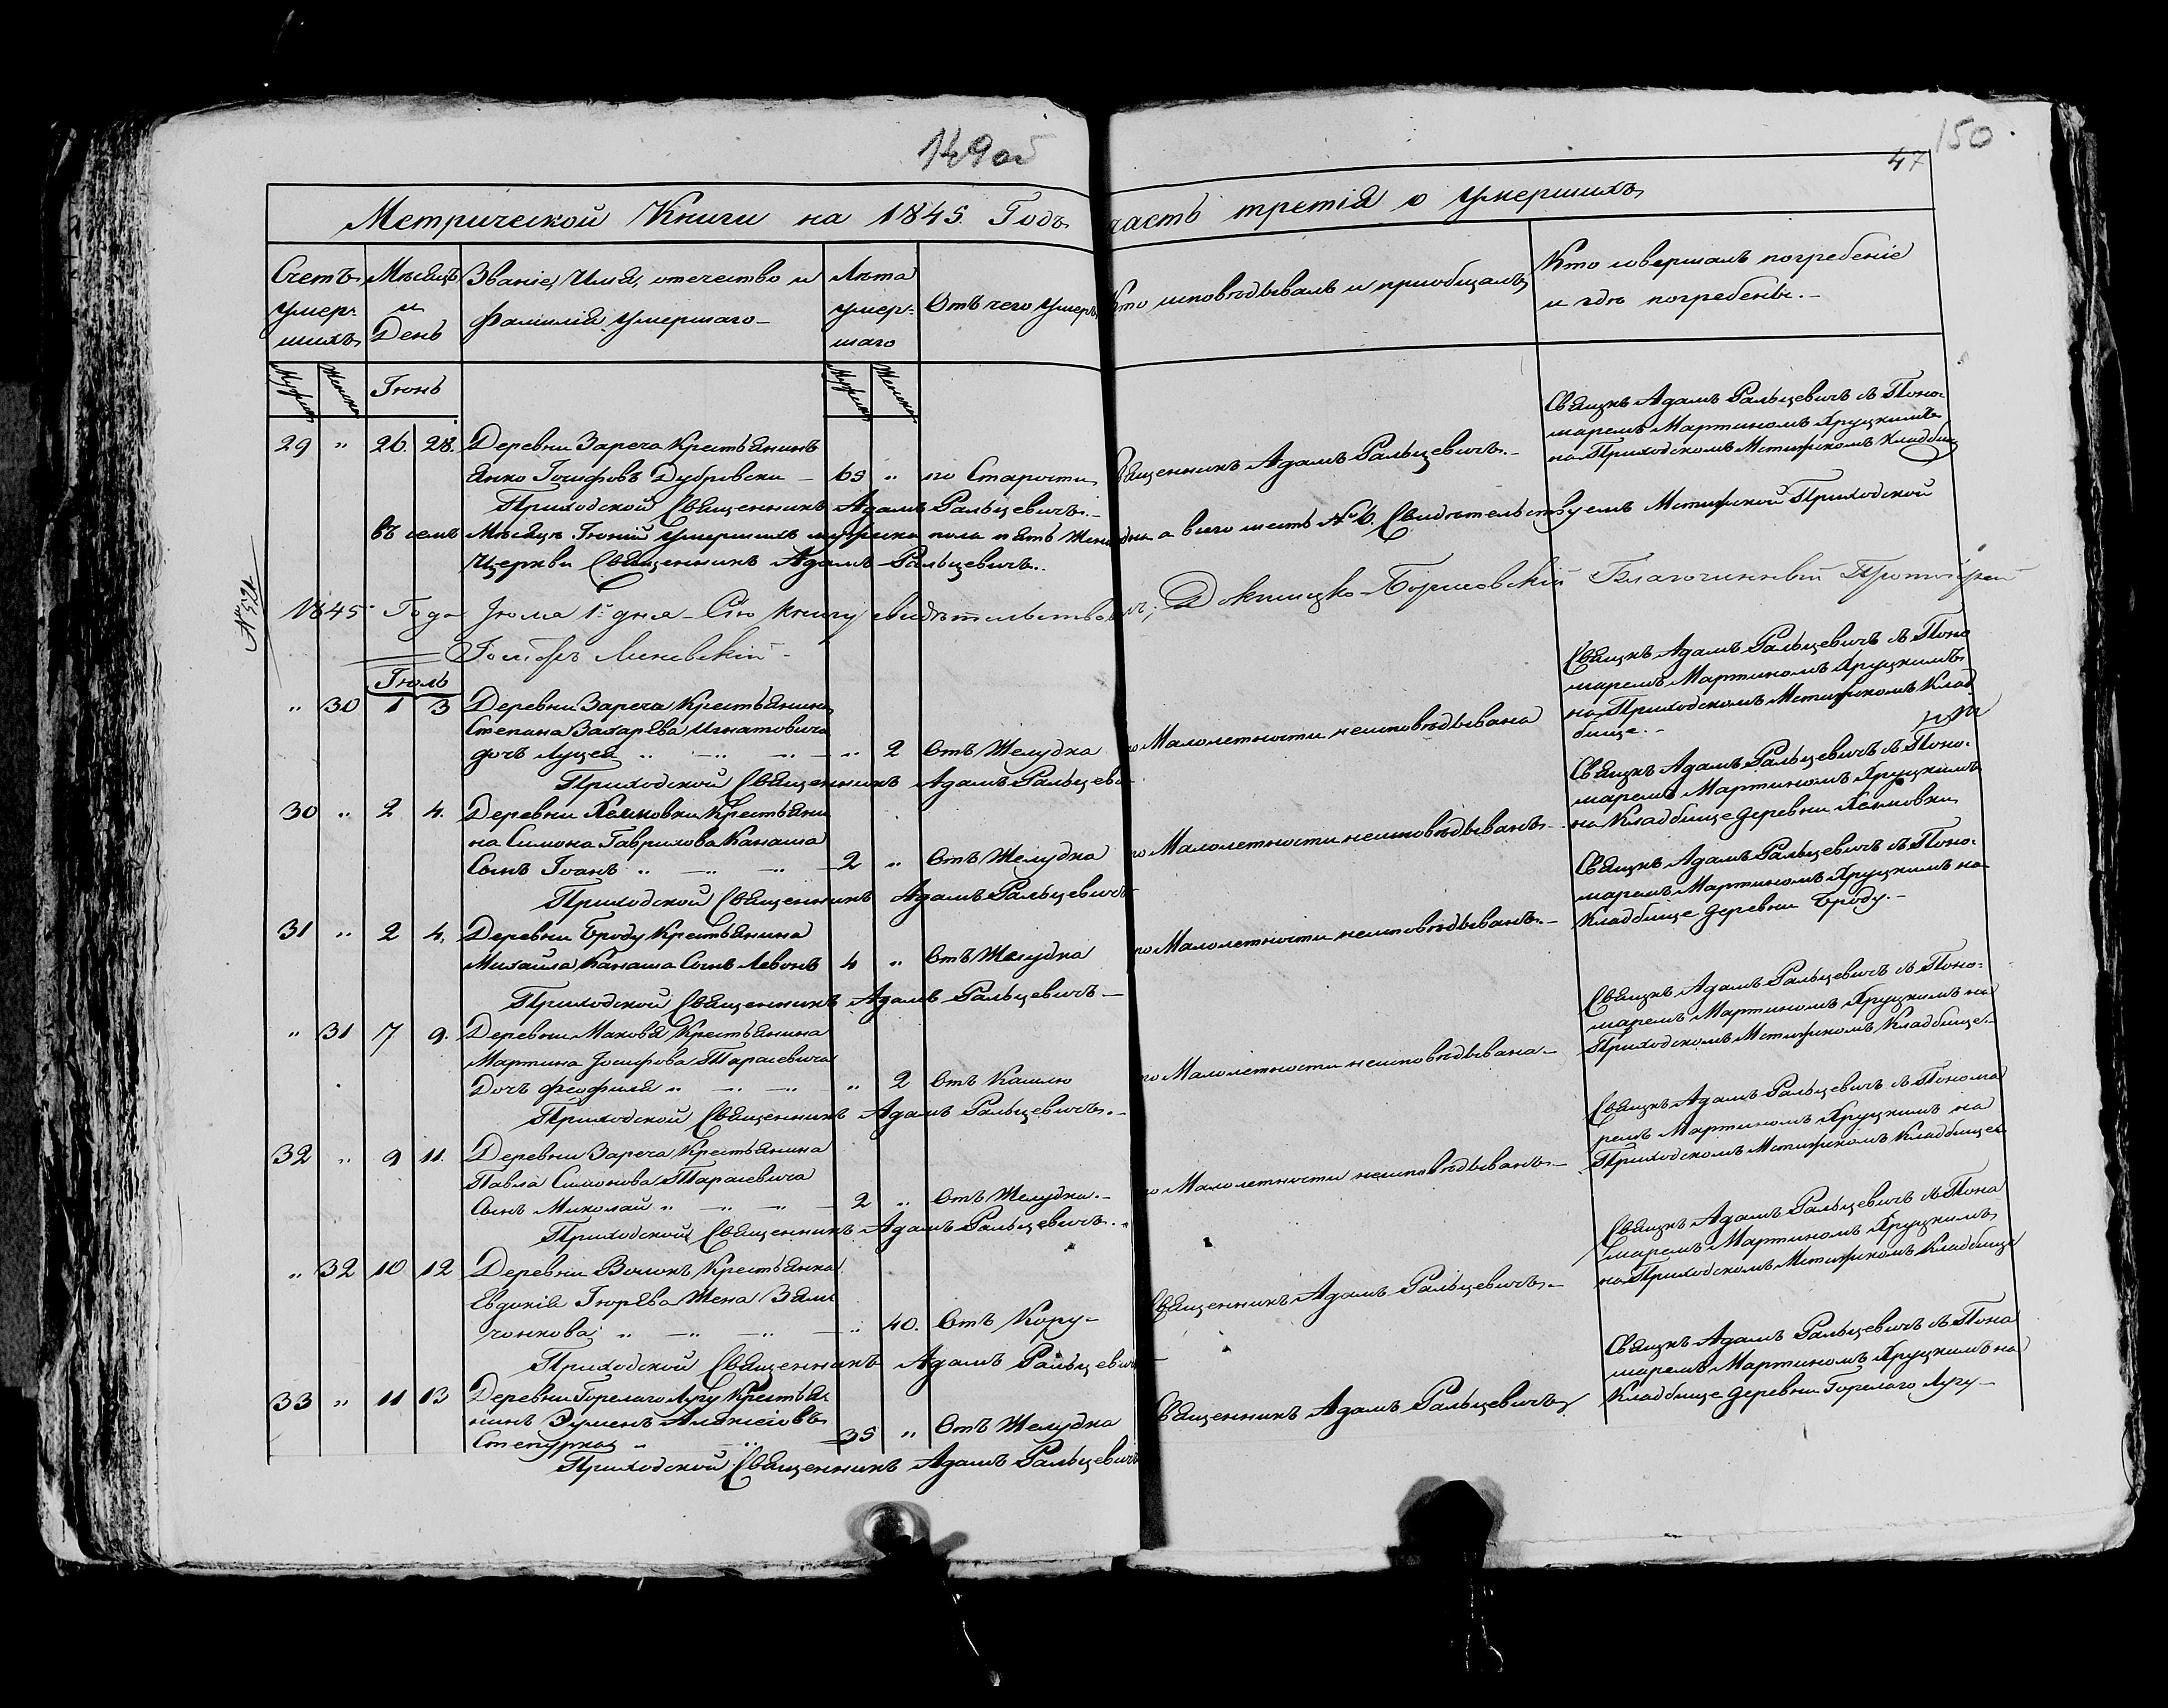 149об
150
47
Метрической Книги на 1845. Годъ часть третія о умершихъ
Счетъ умер- шихъ
Мѣсяцъ и День
Званіе, Имя, отчество и фамилія умершаго
Лѣта умер- шаго
Отъ чего умеръ
Кто исповѣдывалъ и приобщалъ
Кто совершалъ погребеніе и гдѣ погребены.
Мужска Женска
Іюнь
Мужска Женска
29 " 26. 28. Деревни Зареча Крестьянинъ
Янко Іосифовъ Дубровски 65 " по Старости
Священникъ Адамъ Ральцевичъ.
Свящнъ Адамъ Ральцевичъ съ Поно-
маремъ Мартиномъ Хруцкимъ
на Приходскомъ Мстижскомъ Кладбищ
Приходской Священникъ Адамъ Ральцевичъ.
въ семъ Мѣсяцѣ Іюній умершихъ мужска пола пять Женска одна а всего шесть № 6. Свидѣтельствуемъ Мстижской Приходской
Церкви Священникъ Адамъ Ральцевичъ.
№ 521
1845 Года Іюля 1 дня Сію книгу свидѣтельствовалъ; Докшицко-Борисовскій Благочинный Протоіерей
Іосифъ Линевскій
Іюль
" 30 1 3 Деревни Зареча Крестьянина
Степана Захарѣва Игнатовича
дочь Луцея " 2 Отъ Желудка
по Малолетности неисповѣдывана
Свящнъ Адамъ Ральцевичъ съ Поно
маремъ Мартиномъ Хруцкимъ
на Приходскомъ Мстижскомъ Клад
бище.
Приходской Священникъ Адамъ Ральцеви
30 " 2 4. Деревни Хелмовки Крестьяни
на Симона Гаврилова Канаша
Сынъ Іоанъ 2 " Отъ Желудка
по Малолетности неисповѣдыванъ.
Свящнъ Адамъ Ральцевичъ съ Поно-
маремъ Мартиномъ Хруцкимъ
на Кладбище деревни Хелмовки
Приходской Священникъ Адамъ Ральцевичъ
31 " 2 4. Деревни Броду Крестьянина
Михайла Канаша Сынъ Левонъ 4 " Отъ Желудка
по Малолетности неисповѣдыванъ.
Свящнъ Адамъ Ральцевичъ съ Поно-
маремъ Мартиномъ Хруцкимъ на
Кладбище деревни Броду.
Приходской Священникъ Адамъ Ральцевичъ
" 31 7 9. Деревни Маковя Крестьянина
Мартина Іосифова Тарасевича
Дочь Феофиля " 2 Отъ Кашлю
по Малолетности неисповѣдывана
Свящнъ Адамъ Ральцевичъ съ Поно-
маремъ Мартиномъ Хруцкимъ на
Приходскомъ Мстижскомъ Кладбище.
Приходской Священникъ Адамъ Ральцевичъ.
32 " 9 11. Деревни Зареча Крестьянина
Павла Симонова Тарасевича
Сынъ Миколай 2 " Отъ Желудка.
по Малолетности неисповѣдыванъ.
Свящнъ Адамъ Ральцевичъ съ Понома
ремъ Мартиномъ Хруцкимъ на
Приходскомъ Мстижскомъ Кладбище
Приходской Священникъ Адамъ Ральцевичъ.
" 32 10 12 Деревни Волокъ Крестьянка
Евдокія Іюрѣва Жена Зям
чонкова " 40. Отъ Кору
Священникъ Адамъ Ральцевичъ.
Свящнъ Адамъ Ральцевичъ съ Поно
маремъ Мартиномъ Хруцкимъ
на Приходскомъ Мстижскомъ Кладбище
Приходской Священникъ Адамъ Ральцевичъ
33 " 11 13 Деревни Горелаго Лугу Крестья
нинъ Алексіовъ
Степурка 35 " Отъ Желудка
Священникъ Адамъ Ральцевичъ
Свящнъ Адамъ Ральцевичъ съ Поно
маремъ Мартиномъ Хруцкимъ на
Кладбище деревни Горелаго Лугу
Приходской Священникъ Адамъ Ральцевичъ